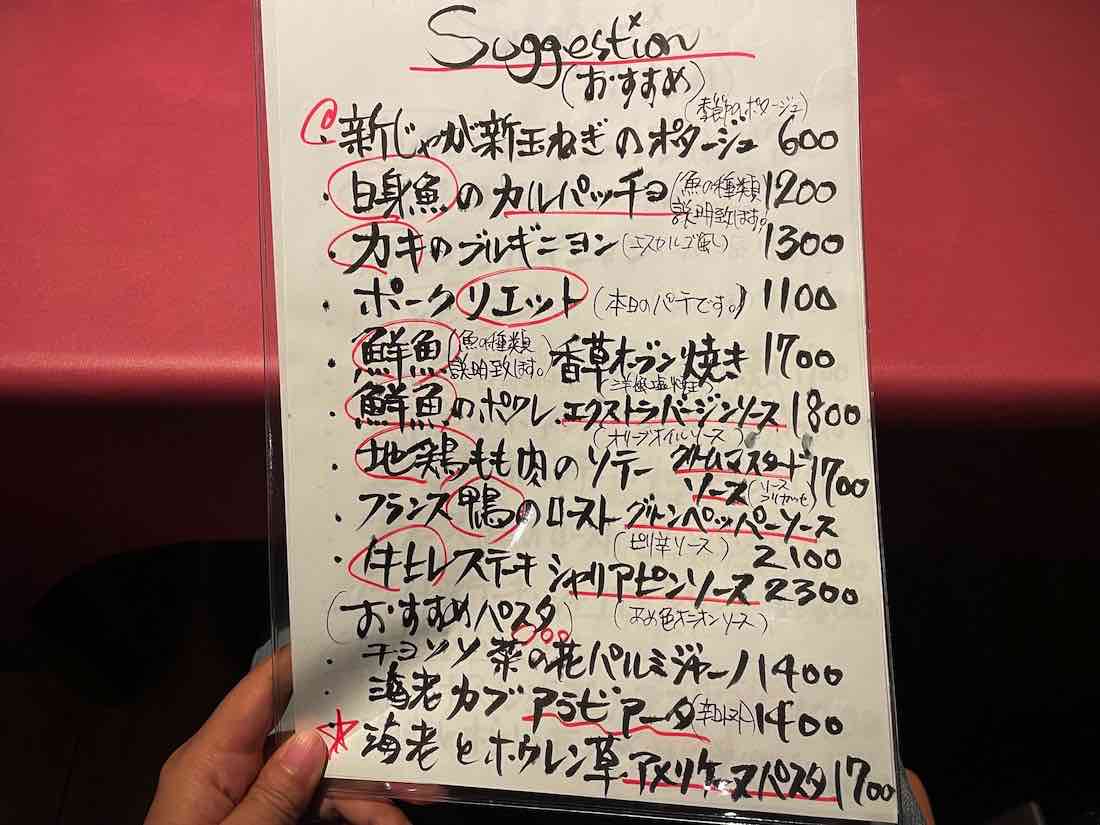 Suggestion
(おすすめ)
(季節のポタージュ)
・新じゃが新玉ねぎのポタージュ 600
・白身魚のカルパッチョ(魚の種類説明致します。) 1200
・カキのブルギニヨン(エスカルゴ風) 1300
・ポークリエット(本日のパテです。) 1100
・鮮魚(魚の種類説明致します。)香草オーブン焼き 1700
・鮮魚のポワレ エクストラバージンソース 1800
(オリーブオイルソース)
・地鶏もも肉のソテー クリームマスタードソース 1700
・フランス鴨のロースト グリーンペッパーソース
(ピリ辛ソース) 2100
・牛ヒレステーキ シャリアピンソース 2300
(おすすめパスタ) (あめ色オニオンソース)
・チョリソ菜の花パルミジャーノ 1400
・海老カブアラビアータ 1400
☆海老とホウレン草アメリケーヌパスタ 1700